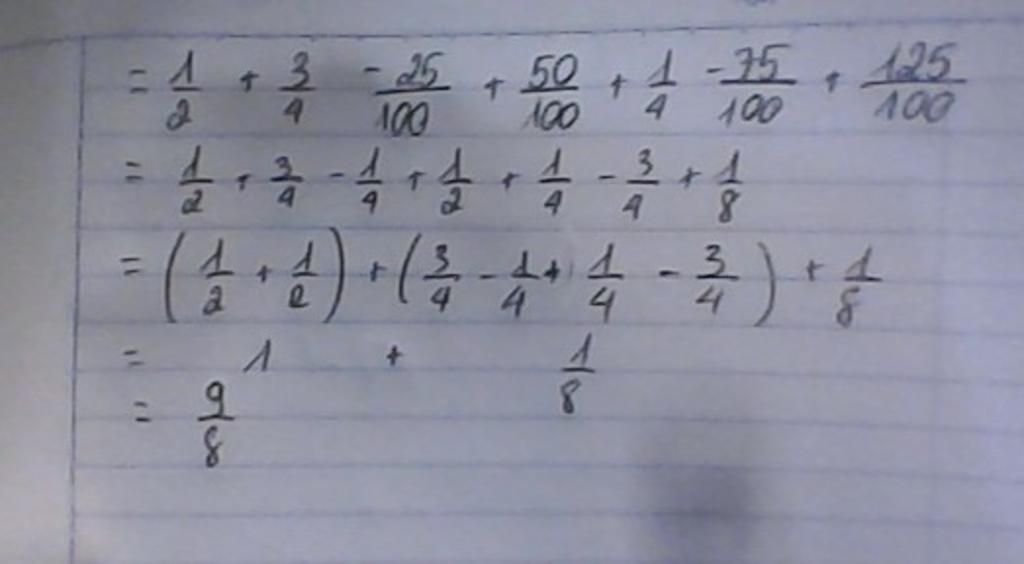 = 1/2 + 3/4 - 25/100 + 50/100 + 1/4 - 75/100 + 125/100
= 1/2 + 3/4 - 1/4 + 1/2 + 1/4 - 3/4 + 1/8
= (1/2 + 1/2) + (3/4 - 1/4 + 1/4 - 3/4) + 1/8
= 1 + 1/8
= 9/8